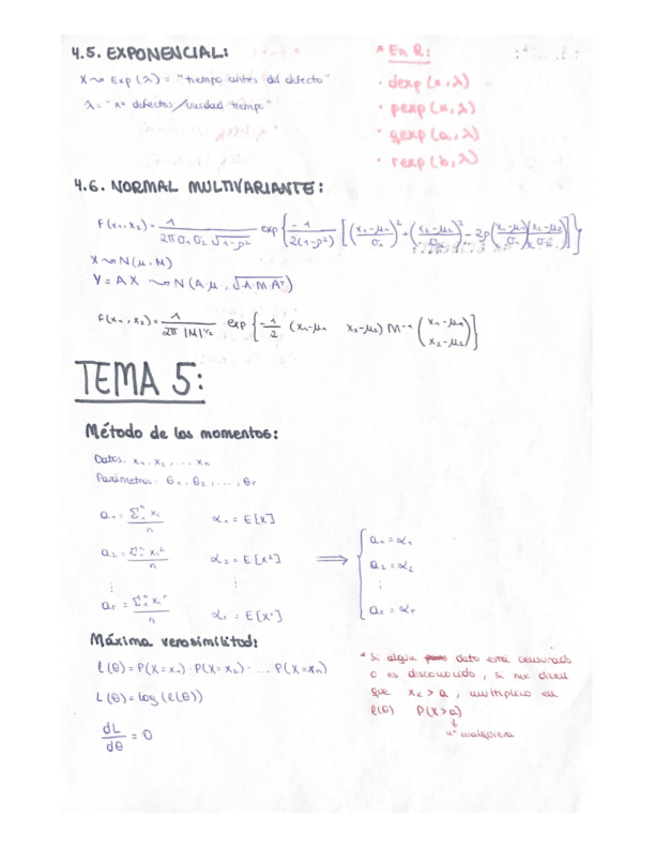 4.5. EXPONENCIAL:
X ~ Exp (λ) = "tiempo antes del defecto"
λ = "nº defectos/unidad tiempo"
* En R:
• dexp (x, λ)
• pexp (x, λ)
• qexp (a, λ)
• rexp (b, λ)
4.6. NORMAL MULTIVARIANTE:
F(x₁, x₂) = 1/(2π σ₁ σ₂ √(1-ρ²)) exp { -1/(2(1-ρ²)) [ ((x₁-μ₁)/σ₁)² + ((x₂-μ₂)/σ₂)² - 2ρ ((x₁-μ₁)/σ₁)((x₂-μ₂)/σ₂) ] }
X ~ N(μ, M)
Y = A X ~ N (A·μ, √(A·M·Aᵀ))
F(x₁, x₂) = 1/(2π |M|^½) · exp { -1/2 (x₁-μ₁  x₂-μ₂) M⁻¹ (x₁-μ₁  x₂-μ₂) }
TEMA 5:
Método de los momentos:
Datos: x₁, x₂, ... xₙ
Parámetros: θ₁, θ₂, ..., θᵣ
a₁ = Σ₁ⁿ xᵢ / n   α₁ = E[X]   a₁ = α₁
a₂ = Σ₁ⁿ xᵢ² / n   α₂ = E[X²] ⟹ a₂ = α₂
⋮   ⋮   ⋮
aᵣ = Σ₁ⁿ xᵢʳ / n   αᵣ = E[Xʳ]   aᵣ = αᵣ
Máxima verosimilitud:
l(θ) = P(X=x₁) · P(X=x₂) · ... P(X=xₙ)
L(θ) = log (l(θ))
dL/dθ = 0
* Si algún dato está censurado
o es desconocido, si me dicen
que xₖ > a, multiplico en
l(θ) P(X>a)
↓
nº cualquiera